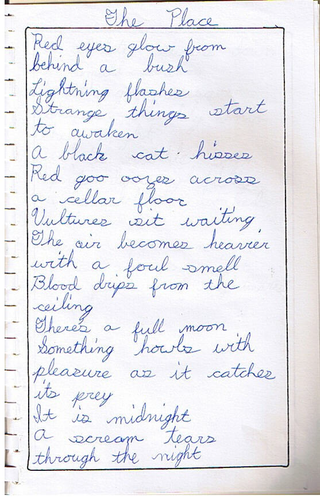 The Place
Red eyes glow from
behind a bush
Lightning flashes
Strange things start
to awaken
A black cat hisses
Red goo oozes across
a cellar floor
Vultures sit waiting
The air becomes heavier
with a foul smell
Blood drips from the
ceiling
There's a full moon
Something howls with
pleasure as it catches
its prey
It is midnight
A scream tears
through the night